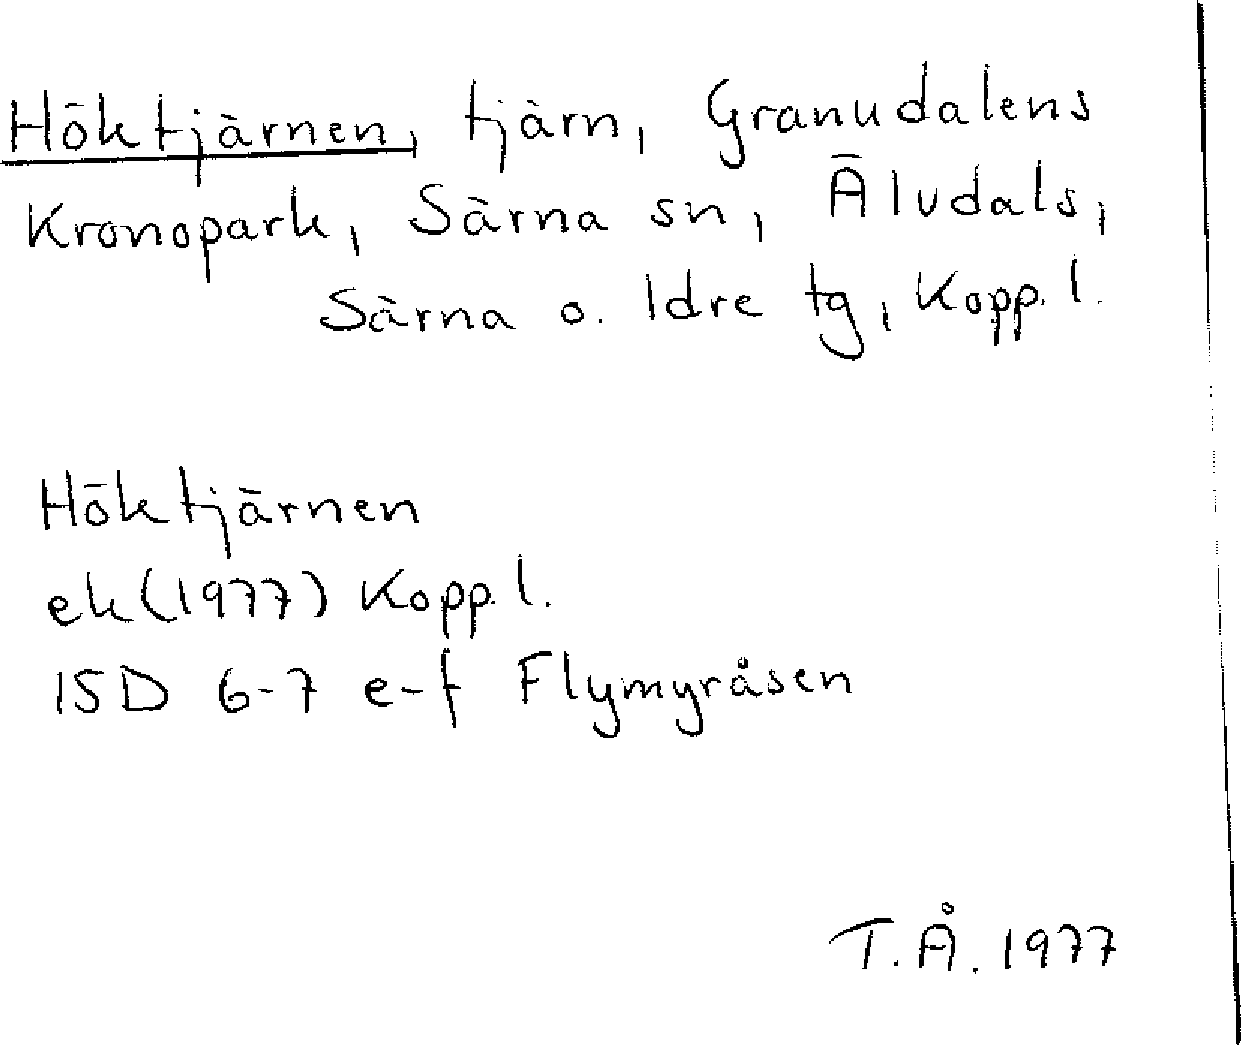 Höktjärnen, tjärn, Granudalens
Kronopark, Särna sn, Älvdals,
Särna o. Idre tg, Kopp. l.
Höktjärnen
ek (1977) Kopp. l.
15D 6-7 e-f Flymyråsen
T.Å. 1977